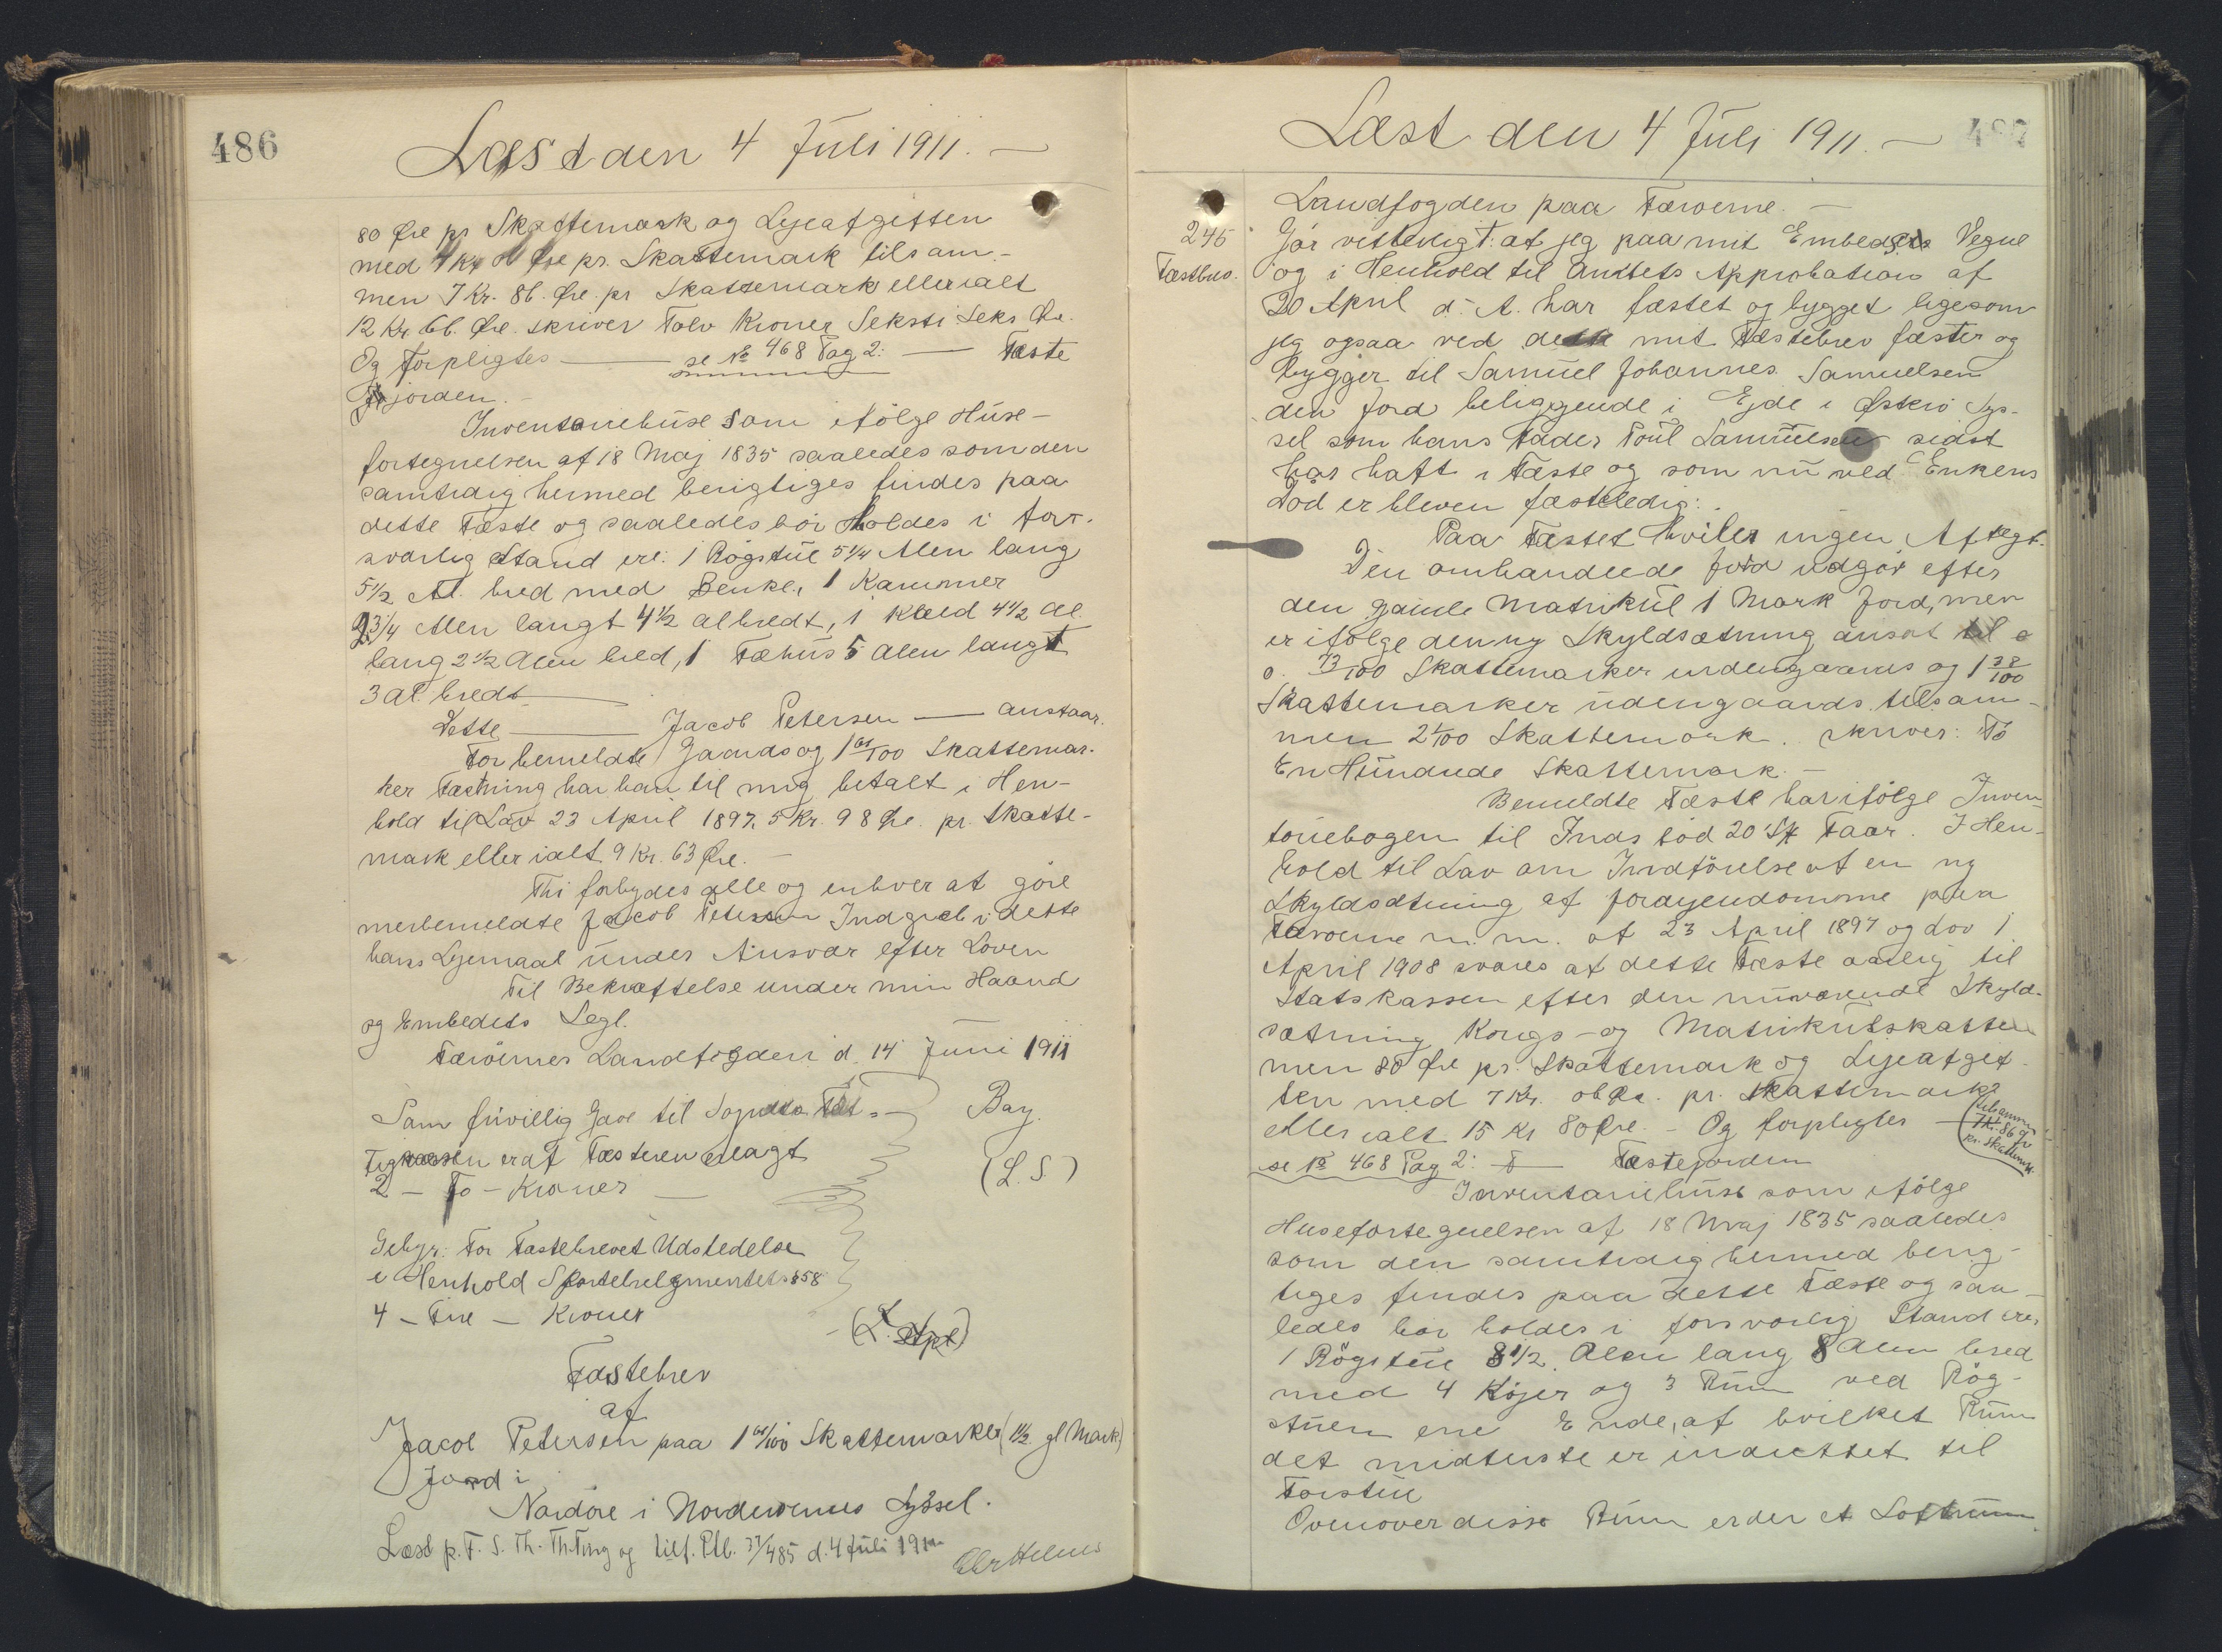 486
Læst den 4 Juli 1911. —
80 Øre pr Skattemark og Lejeafgiften
med 7 Kr 06 Øre pr. Skattemark tilsam-
men 7 Kr. 86. Øre. pr Skattemark eller ialt
12 Kr. 66. Øre. skriver Tolv Kroner Seksti Seks Øre.
Og forpligtes — se No 468 Pag 2: — Fæste
jorden. -
Inventariehuse som ifölge Huse-
fortegnelsen af 18 Maj 1835 saaledes som den
samtidig hermed berigtiges findes paa
dette Fæste og saaledes bör holdes i for-
svarlig Stand ere: 1 Rögstue 5 1/4 Alen lang
5 1/2 Al. bred med Benke, 1 Kammer
3/4 Alen langt 4 1/2 al bredt, 1 Kæld 4 1/2 al.
lang 2 1/2 Alen bred, 1 Fæhus 5 alen langt
3 al bredt
Dette — Jacob Petersen — anstaar.
For bemeldte Gaards og 1 61/100 Skattemar-
ker Fæstning har han til mig betalt i Hen-
hold til Lov 23 April 1897. 5 Kr. 98 Øre. pr. Skatte-
mark eller ialt 9 Kr. 63 Øre. —
Thi forbydes alle og enhver at göre
merbemeldte Jacob Petersen Indgreb i dette
hans Lejemaal under Ansvar efter Loven
Til Bekræftelse under min Haand
og Embedets Segl.
Færöernes Landfogden d. 14 Juni 1911
Som frivillig Gave til Sognets Fat-
tigkassen er af Fæsteren erlagt
2 — To — Kroner —
Bay.
(L. S)
Gebyr: For Fæstebrevet Udstedelse
i Henhold Sportelreglmentets § 58
4 — Fire — Kroner
Fæstebrev
af
Jacob Petersen paa 1 61/100 Skattemarker (1 1/2 gl Mark)
Jord i
Nordöre i Norderoernes Syssel.
Læst p. F. S. Th. Th.Ting og tilf. Ptb. 37/485 d. 4 Juli 1911
487
Læst den 4 Juli 1911. —
Landfogden paa Færoerne. —
245
Fæstbrev.
Gör vitterligt: at jeg paa mit Embeds Vegne
og i Henhold til Amtets Approbation af
20 April d. A. har fæstet og bygget ligesom
jeg ogsaa ved dette mit Fæstebrev fæster og
bygger til Samuel Johannes Samuelsen
den Jord beliggende i Ejde i Østerö Sys-
sel som hans Fader Poul Samuelsen sidst
har haft i Fæste og som nu ved Enkens
Död er bleven fæsteledig:
Paa Fæstet hviler ingen Aftægt.
Den omhandlede Jord udgör efter
den gamle Matrikul 1 Mark Jord, men
er ifölge den ny Skyldsætning ansat til
0. 73/100 Skattemarker indengaards og 1 38/100
Skattemarker udengaards tilsam-
men 2 1/100 Skattemark. skriver: To
En Hundrede Skattemark. —
Bemeldte Fæste har ifölge Inven
toriebogen til Inds töd 20 St Faar. I Hen-
hold til Lov om Indförelse af en ny
Skyldsætning af Jordejendomme paa
Færoerne m. m. af 23 April 1897 og Lov 1
April 1908 svares af dette Fæste aarlig til
Statskassen efter den nuværende Skyld-
sætning Kongs- og Matrikulskatten
men 80 Øre pr. Skattemark og Lejeafgif-
ten med 7 Kr. 06 Øre. pr. Skattemark
(tilsammen
7 Kr. 86 Ø
pr. Skattemk.
eller ialt 15 Kr 80 Øre. — Og forpligtes —
se No 468 Pag 2: — Fæstejorden
Inventariehuse som ifölge
Husefortegnelsen af 18 Maj 1835 saaledes
som den samtidig hermed berig-
tiges findes paa dette Fæste og saa-
ledes bör holdes i forsvarlig Stand ere,
1 Rögstue 8 1/2. Alen lang 8 Alen bred
med 4 Köjer og 3 Rum ved Rög-
stuen ene Ende, af hvilket Rum
det midterste er indrettet til
Forstue
Ovenover disse Rum er der et Loftrum.